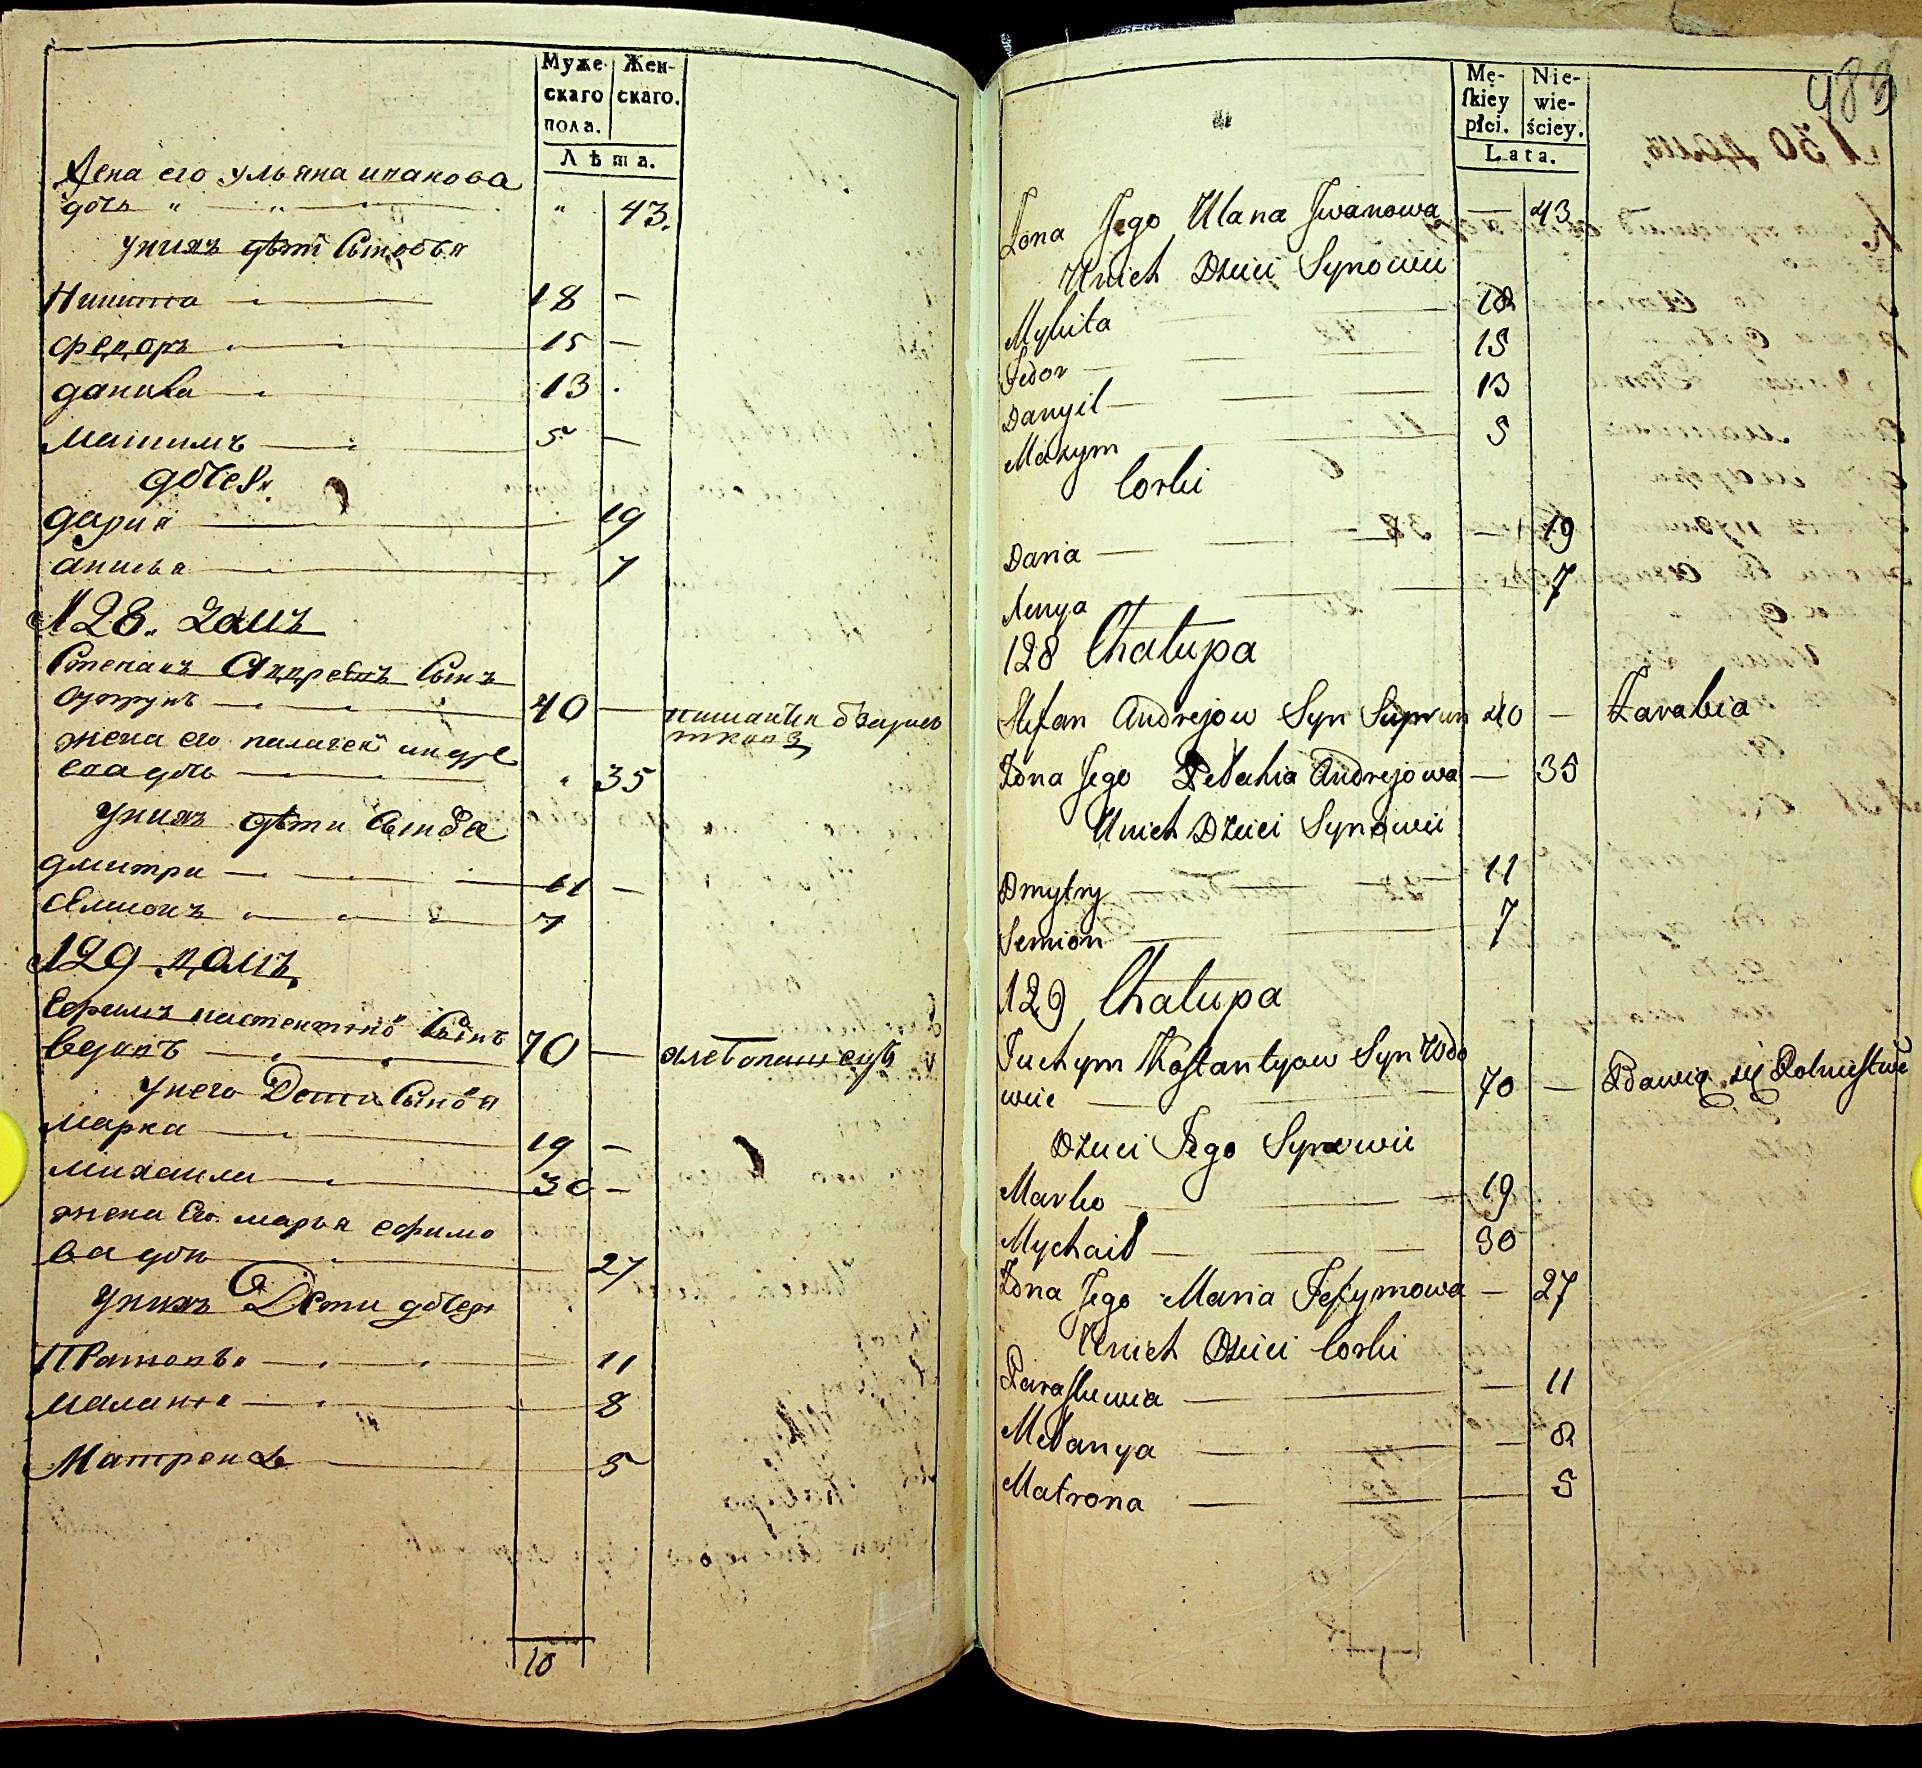 Муже-
скаго
пола.
Жен-
скаго.
Лѣта.
Жена его ульяна иванова
дочь 43.
у них дѣти Сыновья
Никита 18 —
федоръ 15 —
данила 13
Максимъ 5 —
дочери
дария 19
анисья 7
128. домъ
Степанъ Андреевъ Сынъ
40 —
жена его пелагея андре
ева дочь 35
у них дѣти Сыновья
дмитри 11 —
Семионъ 7
129 домъ
Ефимъ Сынъ
70 — хлебопашеств
у него Дети Сыновя
марка 19 —
михаила 30 —
жена Его марья ефимо
ва дочь 27
у них Дети дочери
11
маланя 8
Матрена 5
10
988
Mę-
ſkiey
płci.
Nie-
wie-
ściey.
Lata.
Żona Jego Ulana Jwanowa — 43
U nich Dzieci Synowie
Mykita 18
Fedor 15
Danyił 13
Maxym 5
Corki
Daria 19
7
128 Chałupa
Stefan Andrejow Syn Suprun 40 — Zarabia
Żona Jego Pełahia Andrejowa — 35
U nich Dzieci Synowie
Dmytry 11
Semion 7
129 Chałupa
Juchym Kostantyow Syn Wdo
wiec 70 — Bawią się Rolnictwe
Dzieci Jego Synowie
Marko 19
Mychaił 30
Żona Jego Maria Jefymowa — 27
U nich Dzieci Corki
Paraskiewia — 11
Mełanya — 8
Matrona — 5